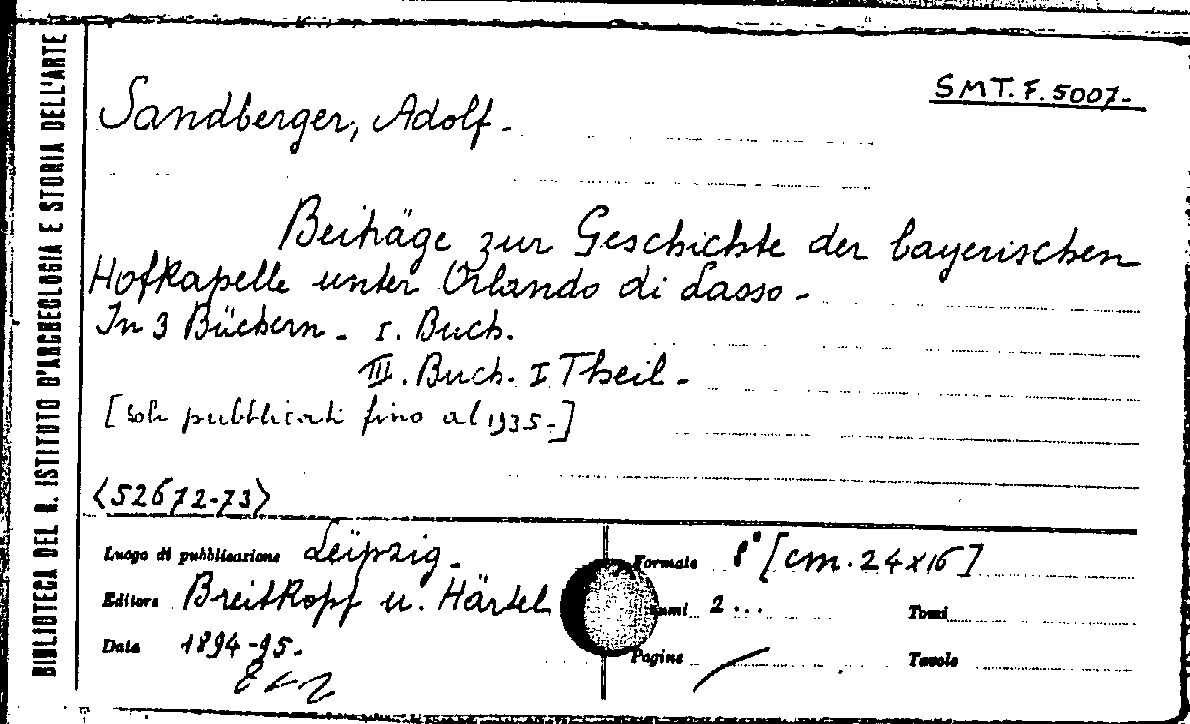 BIBLIOTECA DEL R. ISTITUTO D'ARCHEOLOGIA E STORIA DELL'ARTE
SMT. F. 5007-
Sandberger, Adolf.
Beiträge zur Geschichte der bayerischen
Hofkapelle unter Orlando di Lasso -
In 3 Büchern - I. Buch.
III. Buch. I Theil -
[soli pubblicati fino al 1935-]
<52672-73>
Luogo di pubblicazione Leipzig -
Formato 8° [cm. 24x16]
Editore Breitkopf u. Härtel
2... Tomi
Data 1894-95.
Pagine
Tavole